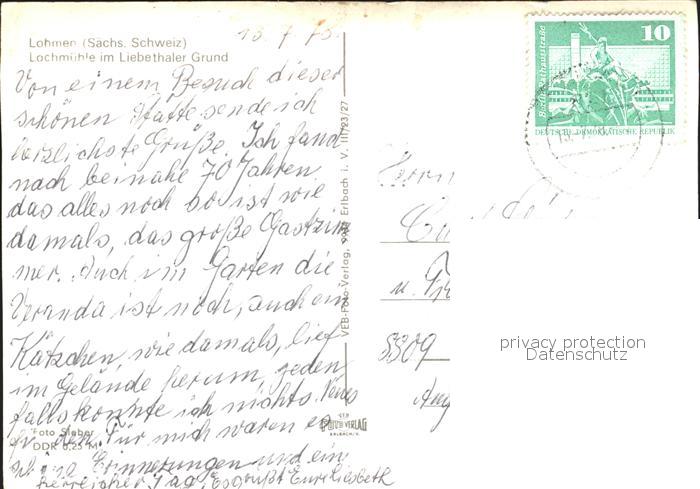 13.7.75.
Lohmen (Sächs. Schweiz)
Lochmühle im Liebethaler Grund
Von einem Besuch dieser
schönen Stätte sende ich
herzlichste Grüße. Ich fand
nach beinahe 70 Jahren
das alles noch so ist wie
damals, das große Gastzim
mer. Auch im Garten die
Veranda ist noch, auch ein
Kätzchen, wie damals, lief
im Gelände herum, jeden
falls konnte ich nichts Neues
finden. Für mich waren es
schöne Erinnerungen und ein
herrlicher Tag. Es grüßt Eure Liesbeth
Foto Sieber
DDR 0,25 M
VEB-Foto-Verlag, Erlbach i. V. III/23/27
FOTO VERLAG
ERLBACH/V.
Berlin, Rathausstraße
10
DEUTSCHE DEMOKRATISCHE REPUBLIK
Herrn
u.
privacy protection
Datenschutz